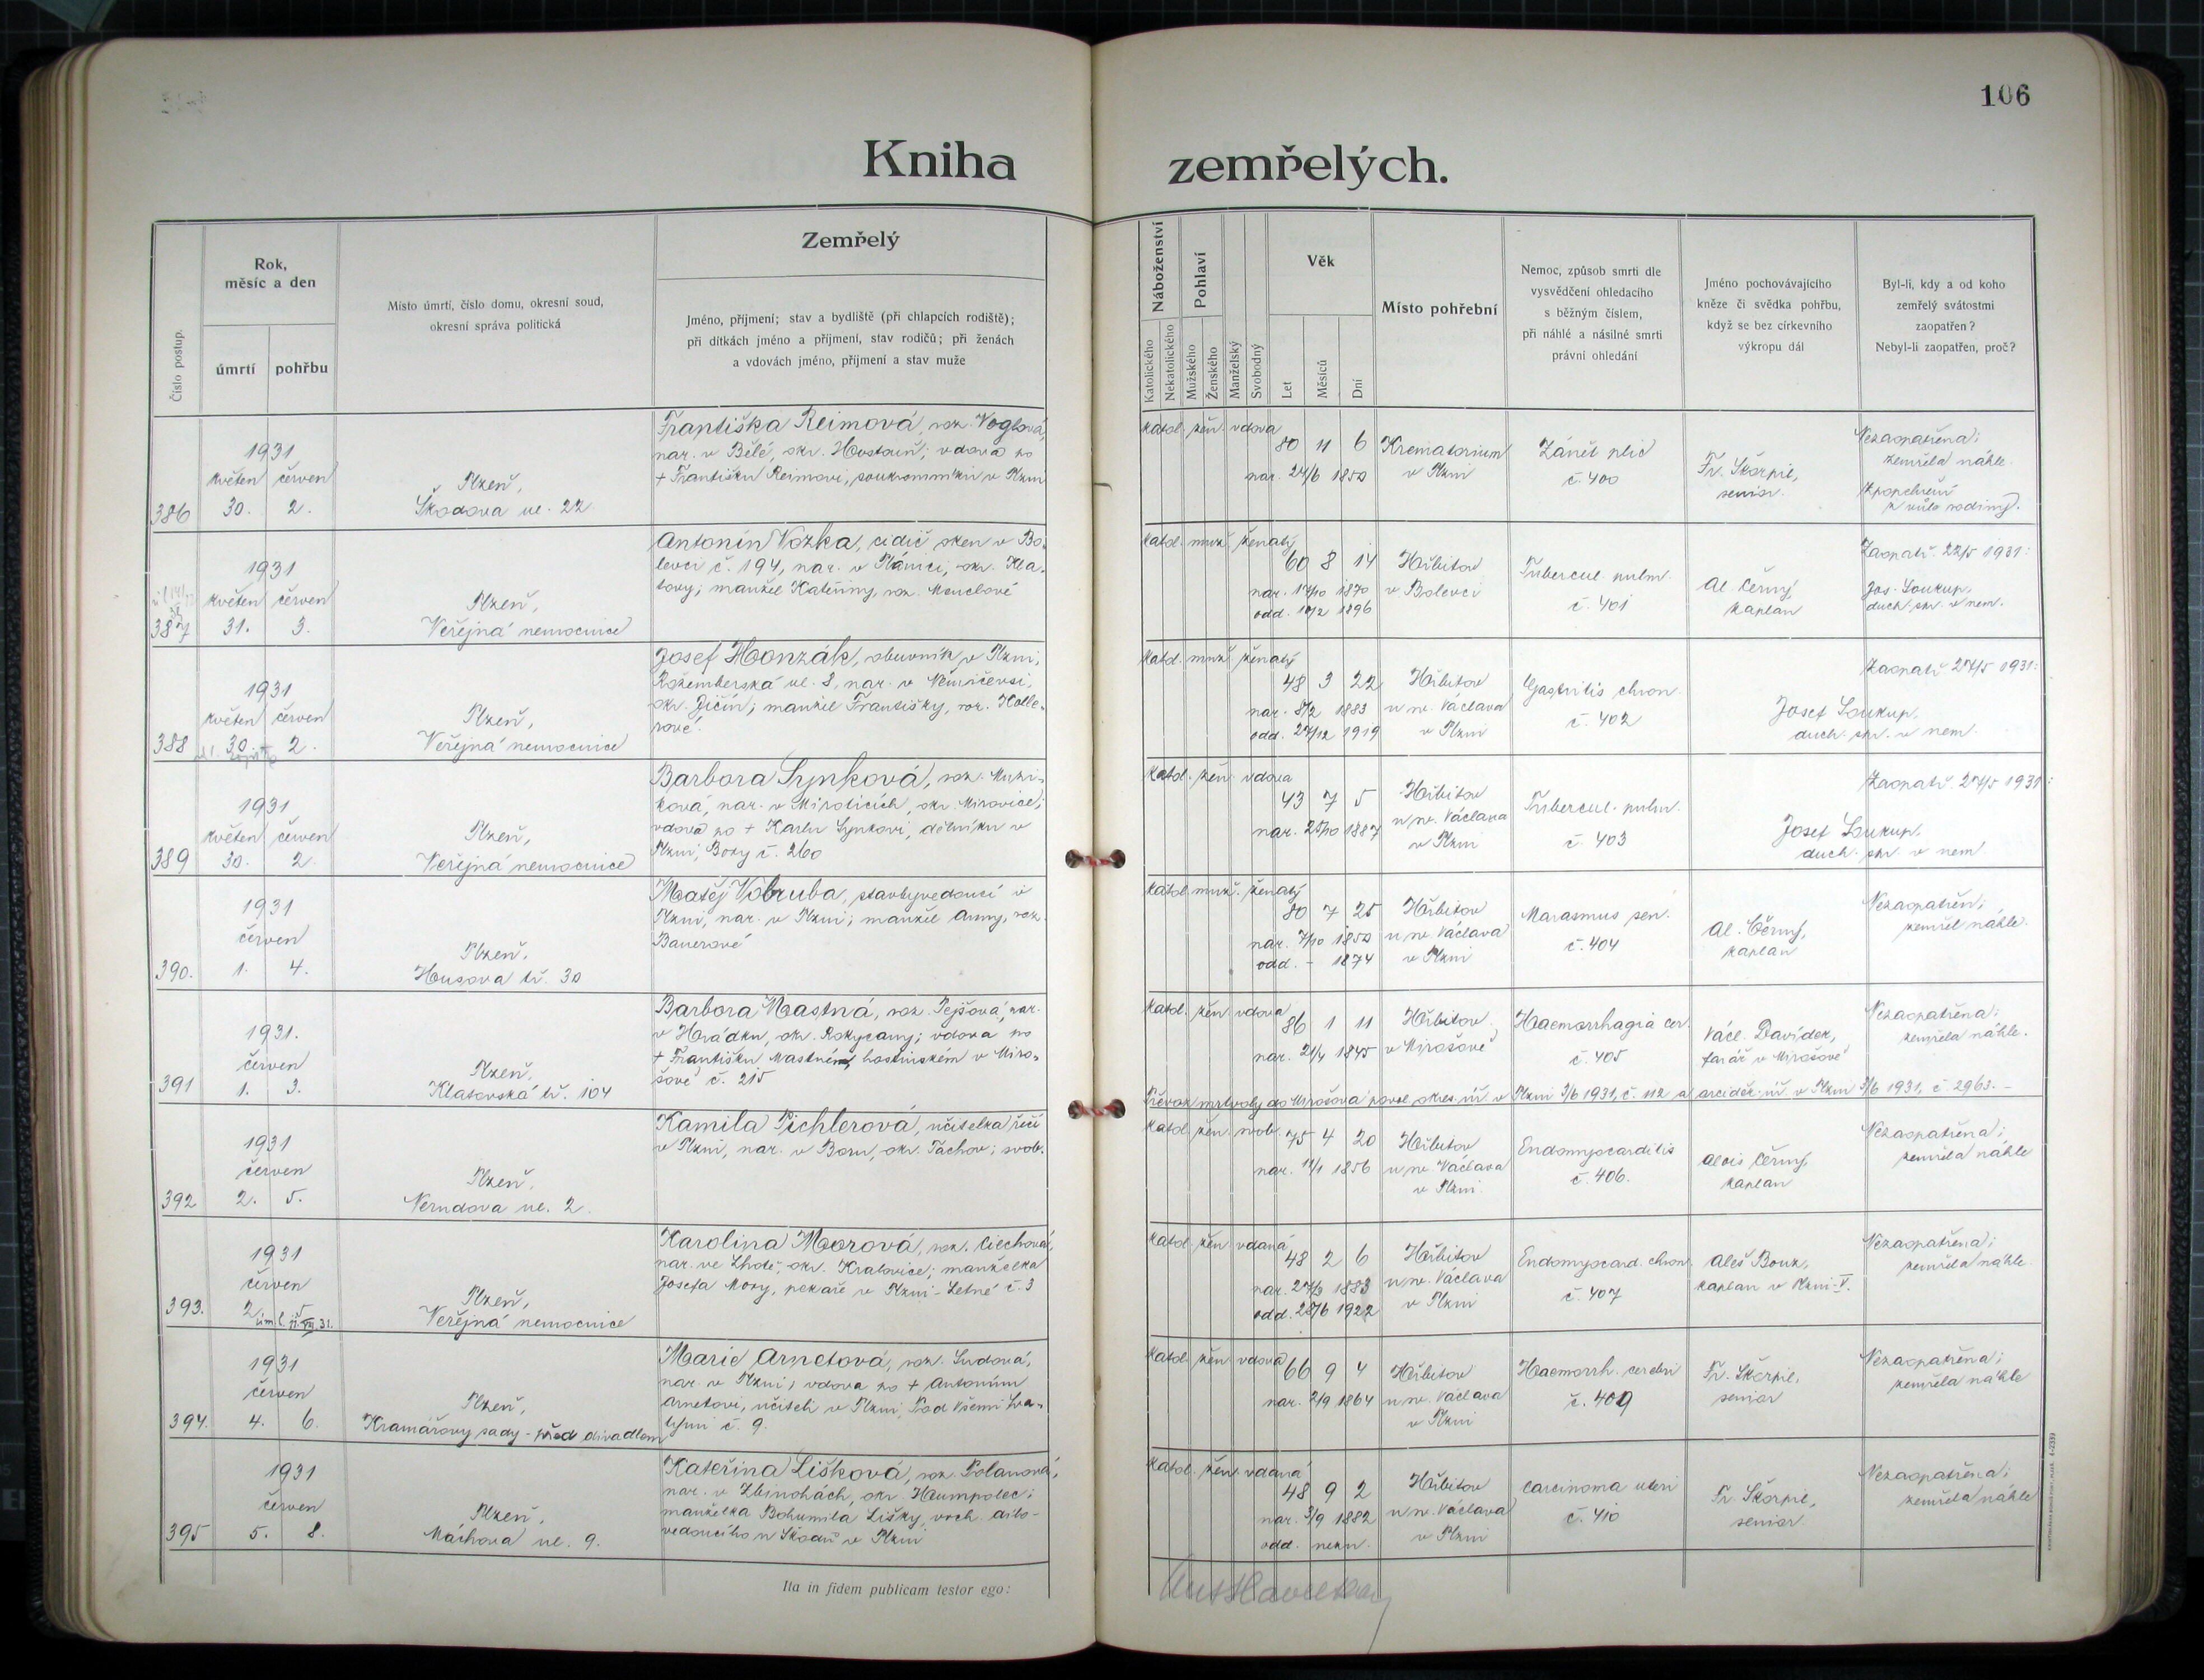 106
Kniha zemřelých.
Číslo postup.
Rok,
měsíc a den
úmrtí
pohřbu
Místo úmrtí, číslo domu, okresní soud,
okresní správa politická
Zemřelý
Jméno, příjmení; stav a bydliště (při chlapcích rodiště);
při dítkách jméno a příjmení, stav rodičů; při ženách
a vdovách jméno, příjmení a stav muže
Náboženství
Katolického
Nekatolického
Pohlaví
Mužského
Ženského
Manželský
Svobodný
Věk
Let
Měsíců
Dní
Místo pohřební
Nemoc, způsob smrti dle
vysvědčení ohledacího
s běžným číslem,
při náhlé a násilné smrti
právní ohledání
Jméno pochovávajícího
kněze či svědka pohřbu,
když se bez církevního
výkropu dál
Byl-li, kdy a od koho
zemřelý svátostmi
zaopatřen?
Nebyl-li zaopatřen, proč?
386
1931
květen červen
30. 2.
Plzeň,
Škodova ul. 22
Františka Reimová, roz. Voglová,
nar. v Bělé, okr. Hostouň; vdova po
+ Františku Reimovi, soukromníku v Plzni
katol. žen. vdova
80 11 6
nar. 24/6 1850
Krematorium
v Plzni
Zánět plic
č. 400
Fr. Škorpil,
senior.
Nezaopatřena;
zemřela náhle.
z vůle rodiny).
387
1931
květen červen
31. 3.
Plzeň,
Veřejná nemocnice
Antonín Vozka, cidič oken v Bo-
levci č. 194, nar. v Plánici, okr. Kla-
tovy; manžel Kateřiny, roz. Mouclové
katol. muž. ženatý
60 8 14
nar. 17/10 1870
odd. 10/2 1896
Hřbitov
v Bolevci
Tubercul. pulm.
č. 401
Al. Černý,
kaplan
Zaopatř. 22/5 1931:
Jos. Soukup,
duch. spr. v nem.
388
1931
květen červen
30. 2.
Plzeň,
Veřejná nemocnice
Josef Honzák, obuvník v Plzni,
Rožemberská ul. 8, nar. v Němičevsi,
okr. Jičín; manžel Františky, roz. Holle-
rové.
katol. muž ženatý
48 3 22
nar. 8/2 1883
odd. 27/12 1919
Hřbitov
u sv. Václava
v Plzni
Gastritis chron.
č. 402
Josef Soukup,
duch. spr. v nem.
Zaopatř. 27/5 1931:
389
1931
květen červen
30. 2.
Plzeň,
Veřejná nemocnice
Barbora Synková, roz. Muzi-
ková, nar. v Miroticích, okr. Mirovice;
vdova po + Karlu Synkovi, dělníku v
Plzni, Bory č. 260
katol. žen. vdova
43 7 5
nar. 25/10 1887
Hřbitov
u sv. Václava
v Plzni
Tubercul. pulm.
č. 403
Josef Soukup,
duch. spr. v nem
Zaopatř. 27/5 1931:
390.
1931
červen
1. 4.
Plzeň,
Husova tř. 30
Matěj Vobruba, stavbyvedoucí v
Plzni, nar. v Plzni; manžel Anny, roz.
Bauerové
katol. muž. ženatý
80 7 25
nar. 7/10 1850
odd. - 1874
Hřbitov
u sv. Václava
v Plzni
Marasmus sen.
č. 404
Al. Černý,
kaplan
Nezaopatřen;
zemřel náhle.
391
1931.
červen
1. 3.
Plzeň,
Klatovská tř. 104
Barbora Mastná, roz. Pejšová, nar.
v Hrádku, okr. Rokycany; vdova po
+ Františku Mastném, hostinském v Miro-
šově č. 215
katol. žen. vdova
86 1 11
nar. 21/4 1845
Hřbitov
v Mirošově
Haemorrhagia cer.
č. 405
Václ. Davídek,
farář v Mirošově
Nezaopatřena;
zemřela náhle.
Převoz mrtvoly do Mirošova povol. okres. úř. v Plzni 3/6 1931, č. 112 a arciděk. úř. v Plzni 3/6 1931, č. 2963. -
392
1931
červen
2. 5.
Plzeň,
Nerudova ul. 2.
Kamila Pichlerová, učitelka řečí
v Plzni, nar. v Boru, okr. Tachov; svob.
katol. žen. svob.
75 4 20
nar. 12/1 1856
Hřbitov
u sv. Václava
v Plzni
Endomyocarditis
č. 406.
Alois Černý,
kaplan
Nezaopatřena;
zemřela náhle
393.
1931
červen
2. 5.
Plzeň,
Veřejná nemocnice
Karolina Morová, roz. Ciechová,
nar. ve Lhotě, okr. Kralovice; manželka
Josefa Mory, pekaře v Plzni - Letné č. 3
katol. žen. vdaná
48 2 6
nar. 27/3 1883
odd. 28/6 1922
Hřbitov
u sv. Václava
v Plzni
Endomyocard. chron.
č. 407
Aleš Bouz,
kaplan v Plzni-V.
Nezaopatřena;
zemřela náhle.
394.
1931
červen
4. 6.
Plzeň,
Kramářovy sady - před divadlem
Marie Arnetová, roz. Sudová,
nar. v Plzni; vdova po + Antonínu
Arnetovi, učiteli v Plzni, Pod Všemi Sva-
tými č. 9.
katol. žen. vdova
66 9 4
nar. 2/9 1864
Hřbitov
u sv. Václava
v Plzni
Haemorrh. cerebri
č. 409
Fr. Škorpil,
senior
Nezaopatřena;
zemřela náhle
395
1931
červen
5. 8.
Plzeň,
Máchova ul. 9.
Kateřina Lišková, roz. Polanová,
nar. v Zbinohách, okr. Humpolec;
manželka Bohumila Lišky, vrch. dílo-
vedoucího u Škodů v Plzni
katol. žen. vdaná
48 9 2
nar. 3/9 1882
odd. nezn.
Hřbitov
u sv. Václava
v Plzni
Carcinoma uteri
č. 410
Fr. Škorpil,
senior
Nezaopatřena;
zemřela náhle
Ita in fidem publicam testor ego: